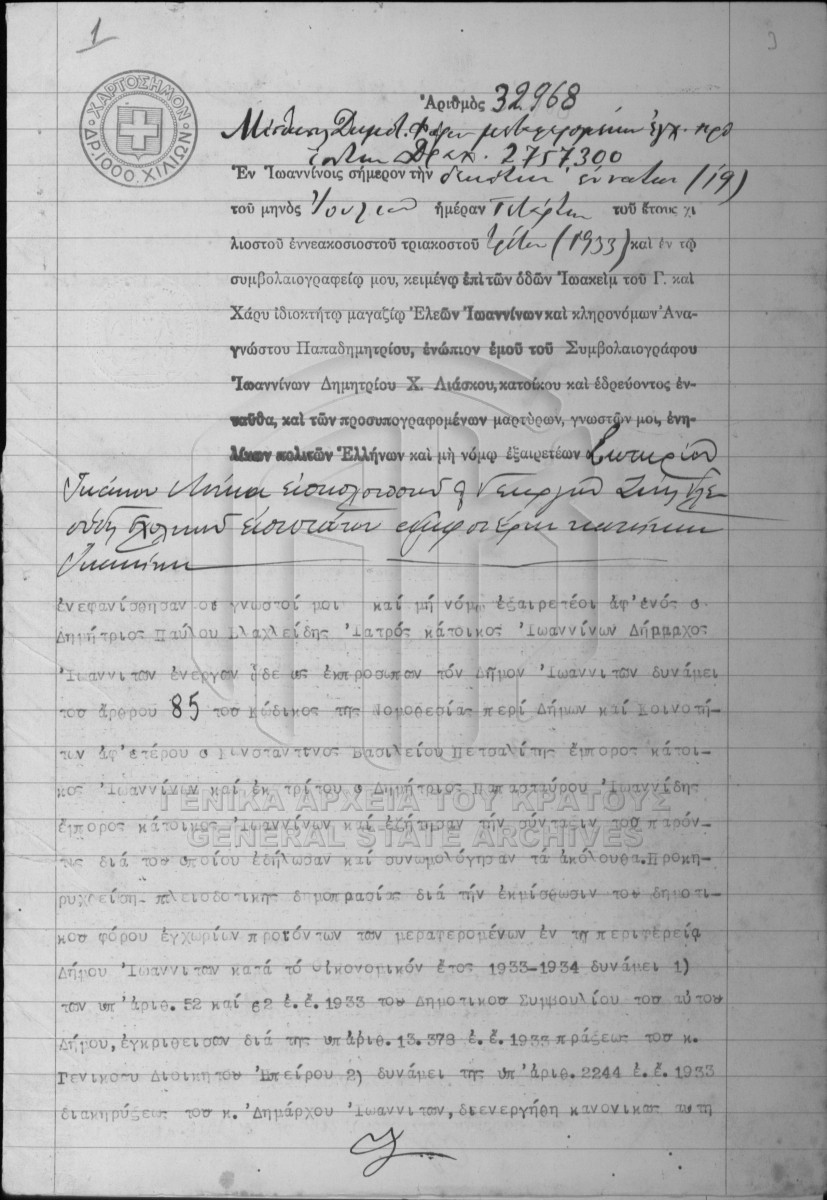 1
ΧΑΡΤΟΣΗΜΟΝ
ΔΡ.1000.ΧΙΛΙΩΝ
Ἀριθμὸς 32968
Δημοτ. Φόρου μεταφερομένων ἐγχ. προ
Δραχ. 2757300
Ἐν Ἰωαννίνοις σήμερον τὴν δεκάτην ἐννάτην (19)
τοῦ μηνὸς Ἰουλίου ἡμέραν Τετάρτην τοῦ ἔτους χι
λιοστοῦ ἐννεακοσιοστοῦ τριακοστοῦ τρίτου (1933) καὶ ἐν τῷ
συμβολαιογραφείῳ μου, κειμένῳ ἐπὶ τῶν ὁδῶν Ἰωακεὶμ τοῦ Γ. καὶ
Χάρυ ἰδιοκτήτῳ μαγαζίῳ Ἐλεῶν Ἰωαννίνων καὶ κληρονόμων Ἀνα-
γνώστου Παπαδημητρίου, ἐνώπιον ἐμοῦ τοῦ Συμβολαιογράφου
Ἰωαννίνων Δημητρίου Χ. Λιάσκου, κατοίκου καὶ ἑδρεύοντος ἐν-
ταῦθα, καὶ τῶν προσυπογραφομένων μαρτύρων, γνωστῶν μοι, ἐνη-
λίκων πολιτῶν Ἑλλήνων καὶ μὴ νόμῳ ἐξαιρετέων Σωτηρίου
Γεωργίου
ἀμφοτέρων κατοίκων
ἐνεφανίσθησαν οι γνωστοί μοι καί μή νόμῳ ἐξαιρετέοι ἀφ'ἑνός ο
Δημήτριος Παύλου Βλαχλείδης Ἰατρός κάτοικος Ἰωαννίνων Δήμαρχος
Ἰωαννιτων ἐνεργων ἤδε ως ἐκπροσωπων τόν Δῆμον Ἰωαννιτων δυνάμει
του ἄρθρου 85 του Κώδικος της Νομοθεσίας περί Δήμων καί Κοινοτή-
των ἀφ'ἑτέρου ο Κωνσταντινος Βασιλείου Πετσαλίτης ἔμπορος κάτοι-
κος Ἰωαννίνων καί ἐκ τρίτου ο Δημήτριος Παπασταύρου Ἰωαννίδης
ἔμπορος κάτοικος Ἰωαννίνων καί ἐζήτησαν τήν σύνταξιν του παρόν-
τος διά του οποίου ἐδήλωσαν καί συνωμολόγησαν τα ἀκόλουθα.Προκη-
ρυχθείση πλειοδοτικης δημοπρασίας διά τήν ἐκμίσθωσιν του δημοτι-
κου φόρου ἐγχωρίων προιόντων των μεραφερομένων ἐν τη περιφερείᾳ
Δήμου Ἰωαννιτων κατά τό οἰκονομικόν ἔτος 1933-1934 δυνάμει 1)
των υπ'ἀριθ.52 καί 62 ἐ.ἔ.1933 του Δημοτικου Συμβουλίου του αὐτου
Δήμου,ἐγκριθεισων διά της υπ'ἀριθ.13.378 ἐ.ἔ.1933 πράξεως του κ.
Γενικου Διοικητου Ἠπείρου 2) δυνάμει της υπ'ἀριθ.2244 ἐ.ἔ.1933
διακηρύξεως του κ.Δημάρχου Ἰωαννιτων,διενεργήθη κανονικως αυτη
ΓΕΝΙΚΑ ΑΡΧΕΙΑ ΤΟΥ ΚΡΑΤΟΥΣ
GENERAL STATE ARCHIVES